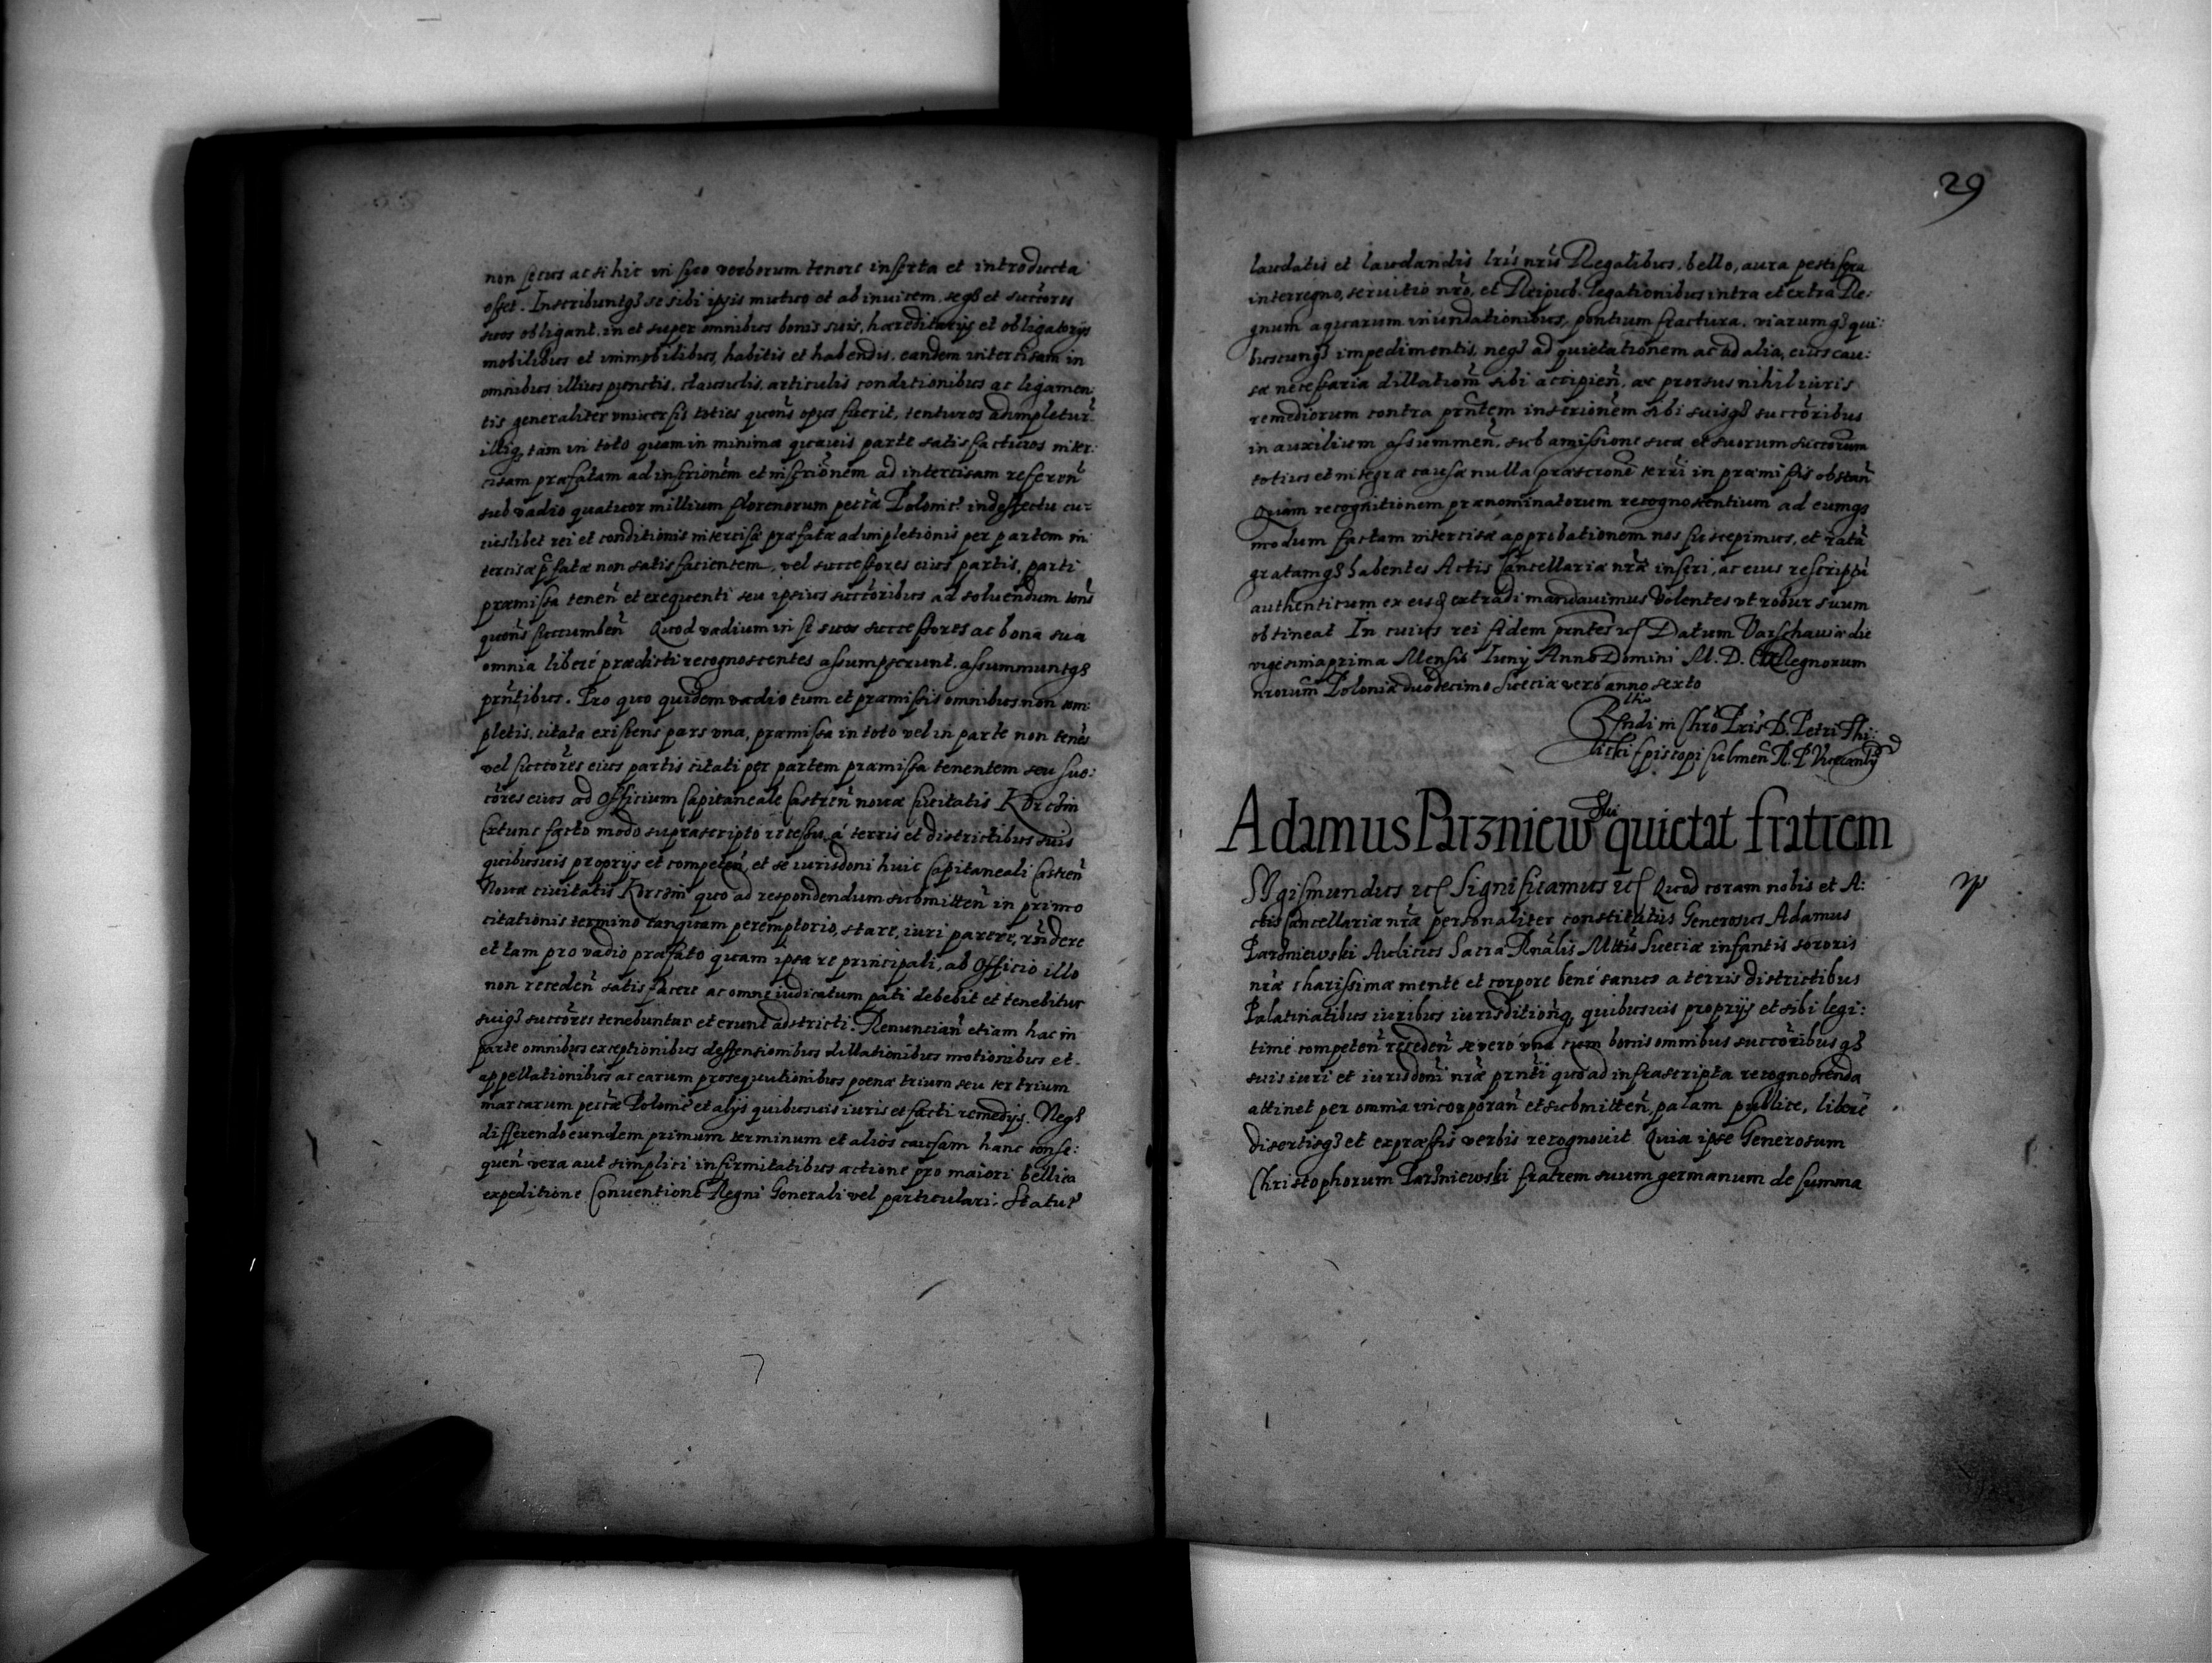 non secus ac si hic in suo verborum tenore inserta et introducta
esset. Inscribuntq3 se sibi ipsis mutuo et ab inuicem, seq3 et succōres
suos obligant, in et super omnibus bonis suis, hæreditarijs et obligatorijs
mobilibus et immobilibus, habitis et habendis, eandem intercisam in
omnibus illius punctis, clausulis, articulis conditionibus ac ligamen:
tis generaliter vniuersis toties quoñs opus fuerit, tenturos adimpletur̃
illiq3 tam in toto quam in minima quauis parte satisfacturos inter:
cisam præfatam ad inscrionẽm et inscrionẽm ad intercisam referẽn
sub vadio quatuor millium florenorum pecũ Polonic̃. in deffectu cu:
iuslibet rei et conditionis intercisæ præfatæ adimpletionis per partem in:
tercisæ p̃fatæ non satisfacientem, vel successores eius partis, parti
præmissa teneñ et exequenti seu ipsius succōribus ad soluendum toñs
quoñs succumbeñ Quod vadium in se suos successores ac bona sua
omnia liberè prædicti recognoscentes assumpserunt, assummuntq3
prñtibus. Pro quo quidem vadio tum et præmissis omnibus non im:
pletis, citata existens pars vna, præmissa in toto vel in parte non teneñs
vel succōres eius partis citati per partem præmissa tenentem seu suc:
cōres eius ad Officium Capitaneale Castreñ nouæ Ciuitatis Korczin
Extunc facto modo suprascripto recessu à terris et districtibus suis
quibusuis proprijs et competeñ, et se iurisdōni huic Capitaneali Castreñ
Nouæ ciuitatis Korczin quo ad respondendum submitteñ in primo
citationis termino tanquam peremptorio, stare, iuri parere, rñdere
et tam pro vadio præfato quam ipsa re principali, ab Officio illo
non recedeñ satisfacere ac omne iudicatum pati debebit et tenebitur
suiq3 succōres tenebuntur et erunt adstricti. Renunciañ etiam hac in
parte omnibus exceptionibus deffensionibus dillationibus motionibus et
appellationibus ac earum prosequutionibus poenæ trium seu ter trium
marcarum pecũæ Polonic̃ et alijs quibusuis iuris et facti remedijs. Neq3
differendo eundem primum terminum et alios causam hanc conse:
queñ vera aut simplici infirmitatibus actione pro maiori bellica
expeditione Conuentione Regni Generali vel particulari. Statut̃
29
laudatis et laudandis lrĩs nrĩs Regalibus, bello, aura pestifera
interregno, seruitio nrõ, et Reipub. legationibus intra et extra Re:
gnum aquarum inundationibus, pontium fractura, viarumq3 qui:
buscunq3 impedimentis, neq3 ad quietationem ac ad alia, eius cau:
sæ necessaria dillationẽm sibi accipieñ, ac prorsus nihil iuris
remediorum contra prñtem inscrionẽm sibi suisq3 succōribus
in auxilium assummeñ, sub amissione suæ et suorum succōrum
totius et integræ causæ nulla præscrionẽ terrĩ in præmissis obstañ
Quam recognitionem prænominatorum recognoscentium ad eumq3
modum factam intercisæ approbationem nos suscepimus, et ratã
gratamq3 habentes Actis Cancellariæ nrǣ inscri, ac eius rescriptũ
authenticum ex eisd extradi mandauimus Volentes vt robur suum
obtineat In cuius rei fidem prñtes etc Datum Varschauiæ die
vigesimaprima Mensis Iunij Anno Domini M. D. Regnorum
nrorum Poloniæ duodecimo Sueciæ verò anno sexto
ltio
Rñdi in Chrõ Prĩs D. Petri Thi:
licki Episcopi Culmeñ R. P. Vicecancly
Adamus Parzniewski quietat fratrem
Sigismundus etc Significamus etc Quod coram nobis et A:
ctis Cancellariæ nrǣ personaliter constitutus Generosus Adamus
Parzniewski Aulicus Sacræ Rñalis Mttis Sueciæ infantis sororis
nrǣ charissimæ mente et corpore benè sanus a terris districtibus
Palatinatibus iuribus iurisditionq3 quibusuis proprijs et sibi legi:
time competeñ recedeñ se verò vna cum bonis omnibus succōribusq3
suis iuri et iurisdōni nrǣ prñti quo ad infrascripta recognoscenda
attinet per omnia incorporañ et submitteñ, palam publice, liberè
disertisq3 et expressis verbis recognouit. Quia ipse Generosum
Christophorum Parzniewski fratrem suum germanum de summa